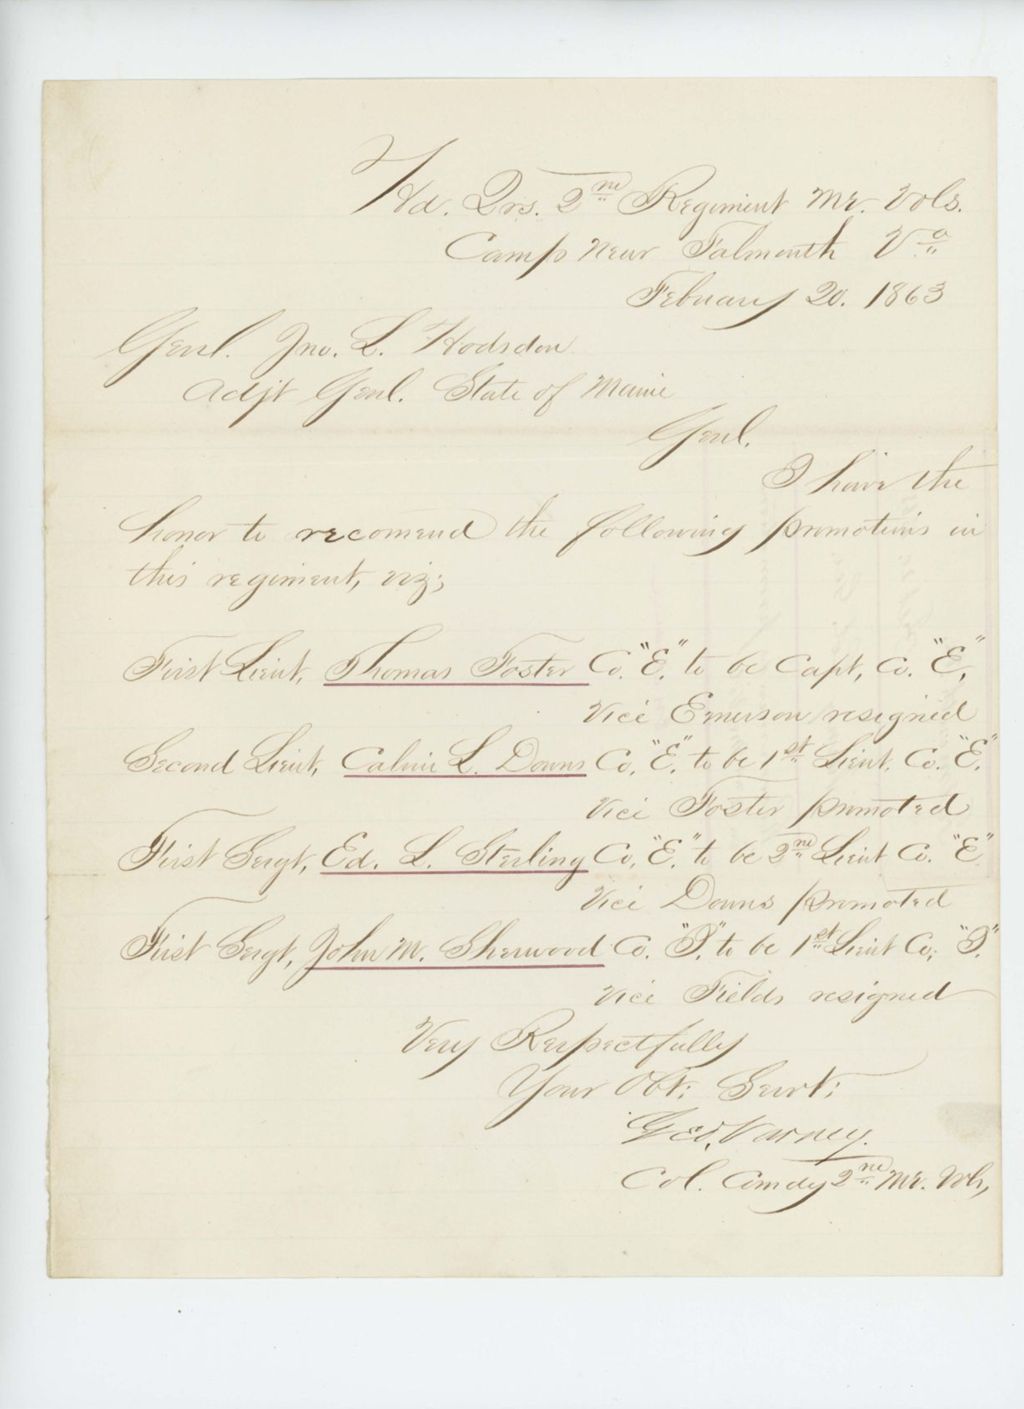 Hd. Qrs. 2nd Regiment Me. Vols.
Camp near Falmouth Va
Febuary 20. 1863
Genl. Jno. L. Hodsdon
Adjt Genl. State of Maine
Genl.
I have the
honor to recomend the following promotions in
this regiment, viz;
First Lieut, Thomas Foster Co. "E," to be Capt, Co. "E,"
Vice Emerson resigned
Second Lieut, Calvin L. Downs Co, "E," to be 1st Lieut. Co. "E."
Vice Foster promoted
First Sergt, Ed. L. Sterling Co, "E," to be 2nd Lieut Co. "E"
Vice Downs promoted
First Sergt, John M. Sherwood Co. "I," to be 1st Lieut Co; "I."
Vice Fields resigned
Very Respectfully
Your Obt; Servt;
Geo, Varney.
Col. Comdg 2nd Me. Vols,